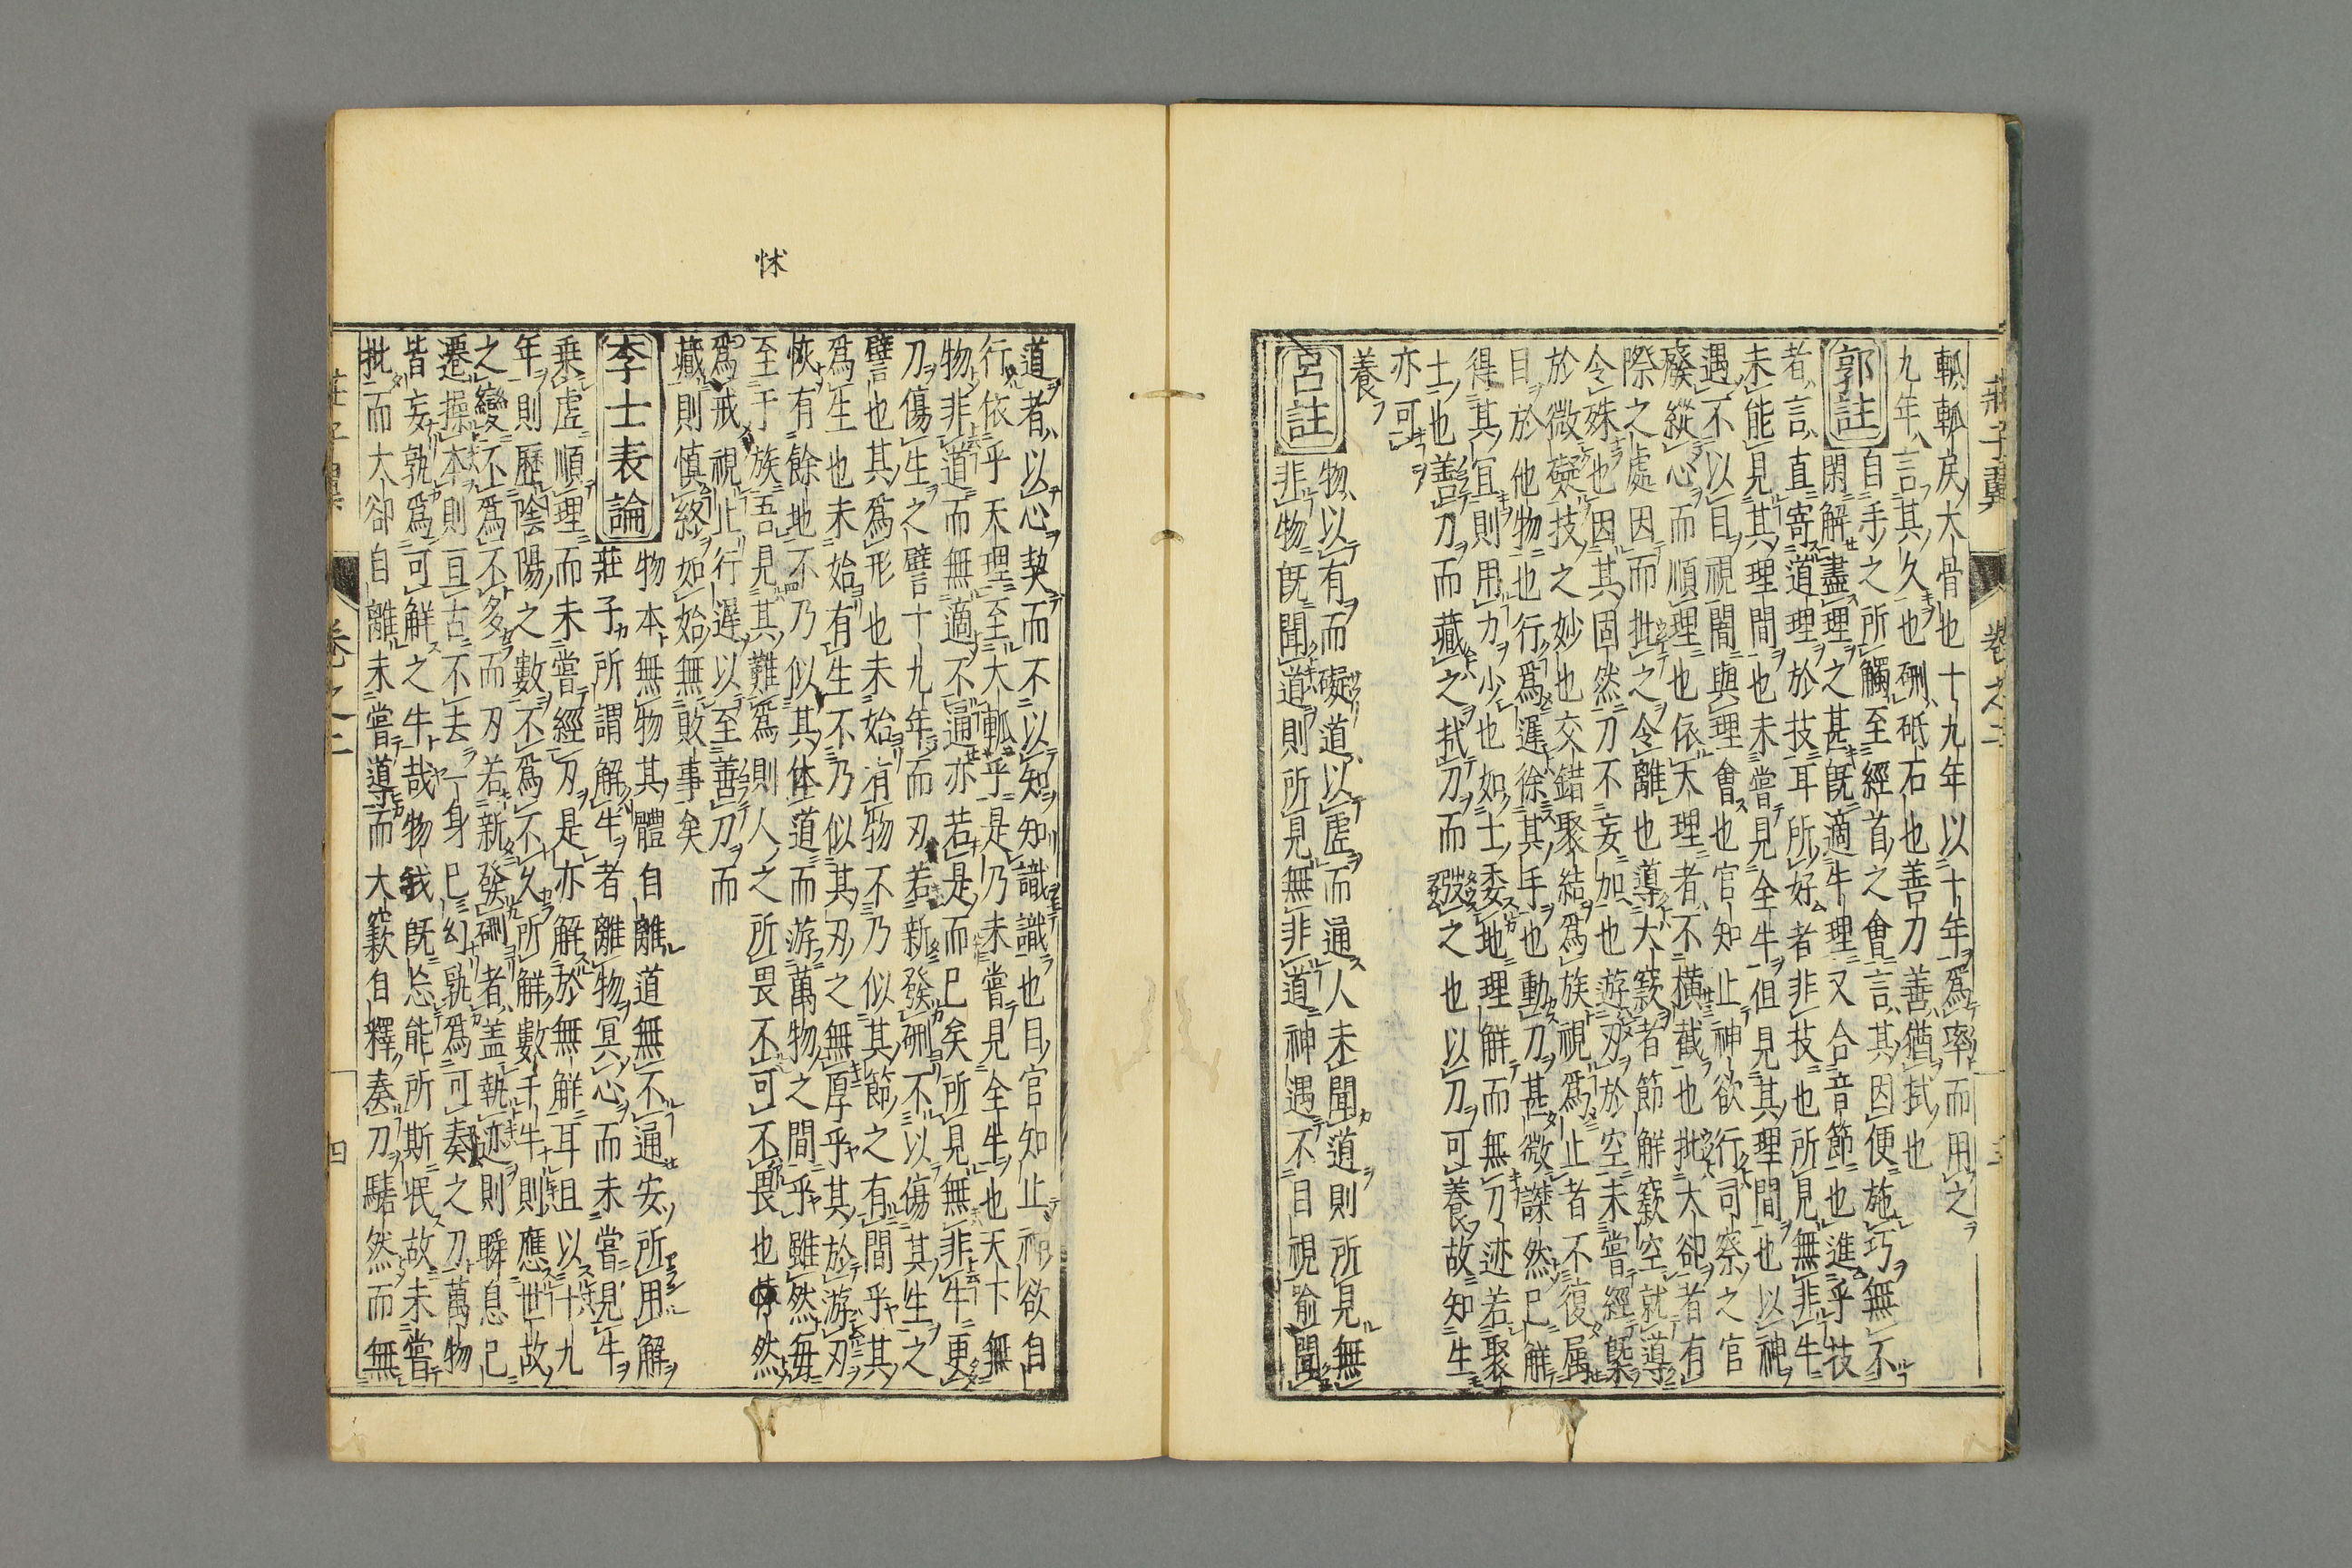 莊子翼 卷之二 三
軱軱戾大骨也十九年以十年爲率而用之
九年言其久也硎砥石也善刀善猶拭也
郭註
自手之所觸至經首之會言其因便施巧無不
閑解盡理之甚既適牛理又合音節也進乎技
者言直寄道理於技耳所好者非技也所見無非牛
未能見其理間也未嘗見全牛但見其理間也以神
遇不以目視闇與理會也官知止神欲行司察之官
廢縱心而順理也依天理者不橫截也批大卻者有
際之處因而批之令離也導大窾者節解窾空就導
令殊也因其固然刀不妄加也遊刃於空未嘗經槩
於微礙技之妙也交錯聚結爲族視爲止者不復属
目於他物也行爲遲徐其手也動刀甚微謋然已解
得其宜則用力少也如土委地理解而無刀迹若聚
土也善刀而藏之拭刀而弢之也以刀可養故知生
亦可
養
呂註
物以有而礙道以虛而通人未聞道則所見無
非物既聞道則所見無非道神遇不目視喻聞
道者以心契而不以知知識識也目官知止神欲自
行依乎天理至大軱乎是乃未嘗見全牛也天下無
物非道而無適不逼亦若是而已矣所見無非牛更
刀傷生之譬十九年而刃若新發硎不以傷其生之
譬也其爲形也未始有物不乃似其節之有間乎其
爲生也未始有生不乃似其刃之無厚乎其於游刃
恢有餘地不乃似其体道而游萬物之間乎雖然毎
至于族吾見其難爲則人之所畏不可不畏也怵然
爲戒視止行遲以至善刀而
藏則愼終如始無敗事矣
怵
李士表論
物本無物其體自離道無不通安所用解
莊子所謂解牛者離物冥心而未嘗見牛
乗虛順理而未嘗經刃是亦解於無解耳且以十九
年則歷陰陽之數不爲不久所解數千牛則應世故
之變不爲不多而刃若新發硎者盖執迹則瞬息已
遷操本則亘古不去一身已幻孰爲可奏之刀萬物
皆妄孰爲可解之牛哉物我既忘能所斯泯故未嘗
批而大卻自離未嘗導而大窾自釋奏刀騞然而無
卷之二 四